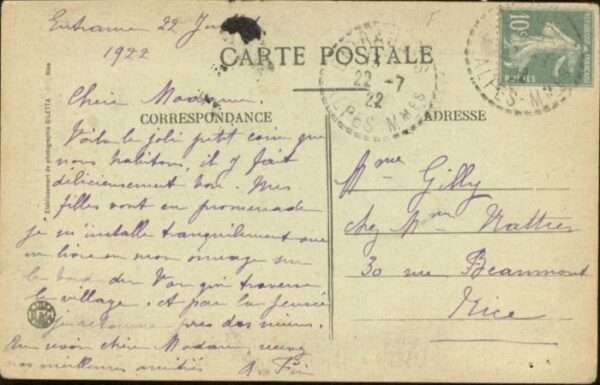 Entraunes 22 Juillet
1922
CARTE POSTALE
CORRESPONDANCE
ADRESSE
Chère Madame.
Voilà le joli petit coin que
nous habitons, il y fait
délicieusement bon. Mes
filles vont en promenade
je m'installe tranquilement avec
un livre ou mon ouvrage sur
le bord du Var qui traverse
le village. et par la pensée
je retourne près des miens.
Au revoir chère Madame, recevez
nos meilleures amitiés
Mme Gilly
chez Mme Nattier
30 rue Beaumont
Nice
22 -7
22
ALPES-MMES
ALPES-M
10
Etablissement de photographie GILETTA
Nice